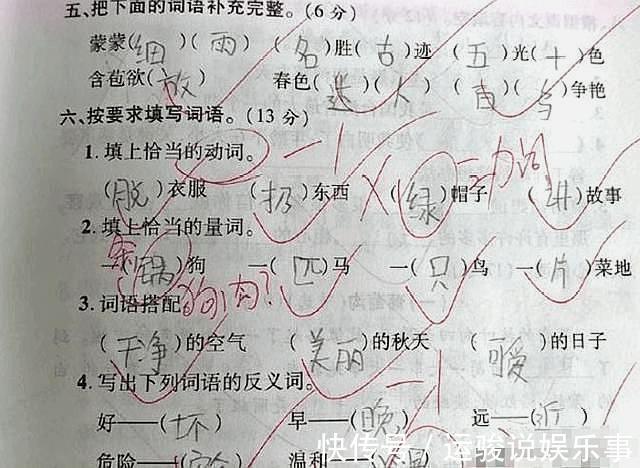 五、把下面的词语补充完整。(6分)
蒙蒙(细)(雨) (名)胜(古)迹 (五)光(十)色
含苞欲(放) 春色(迷)(人) (百)(鸟)争艳
六、按要求填写词语。(13分)
1.填上恰当的动词。 -1
(脱)衣服 (扔)东西 (绿)帽子 (讲)故事 ×动词
2.填上恰当的量词。
一(锅)狗 一(匹)马 一(只)鸟 一(片)菜地
条 狗肉?
3.词语搭配
(干净)的空气 (美丽)的秋天 (可爱)的日子
4.写出下列词语的反义词。 -1
好——(坏) 早——(晚) 远——(近)
危险——( 温和——(
快传号/运骏说娱乐事